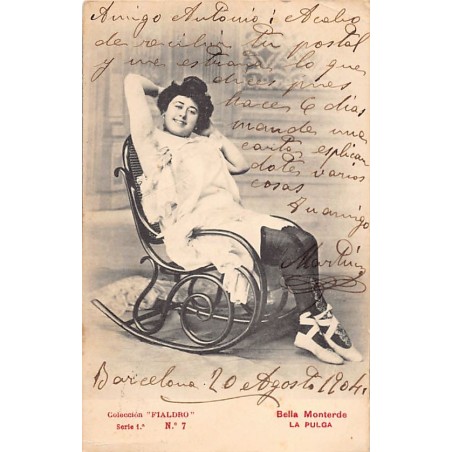 Amigo Antonio; Acabo
de recibir tu postal
y me extraña lo que
dices pues
hace 6 días
mande una
carta esplican
dote varios
cosas
Tu amigo
Martin
Barcelona 20 Agosto 1904.
Colección "FIALDRO"
Serie 1.ª N.º 7
Bella Monterde
LA PULGA